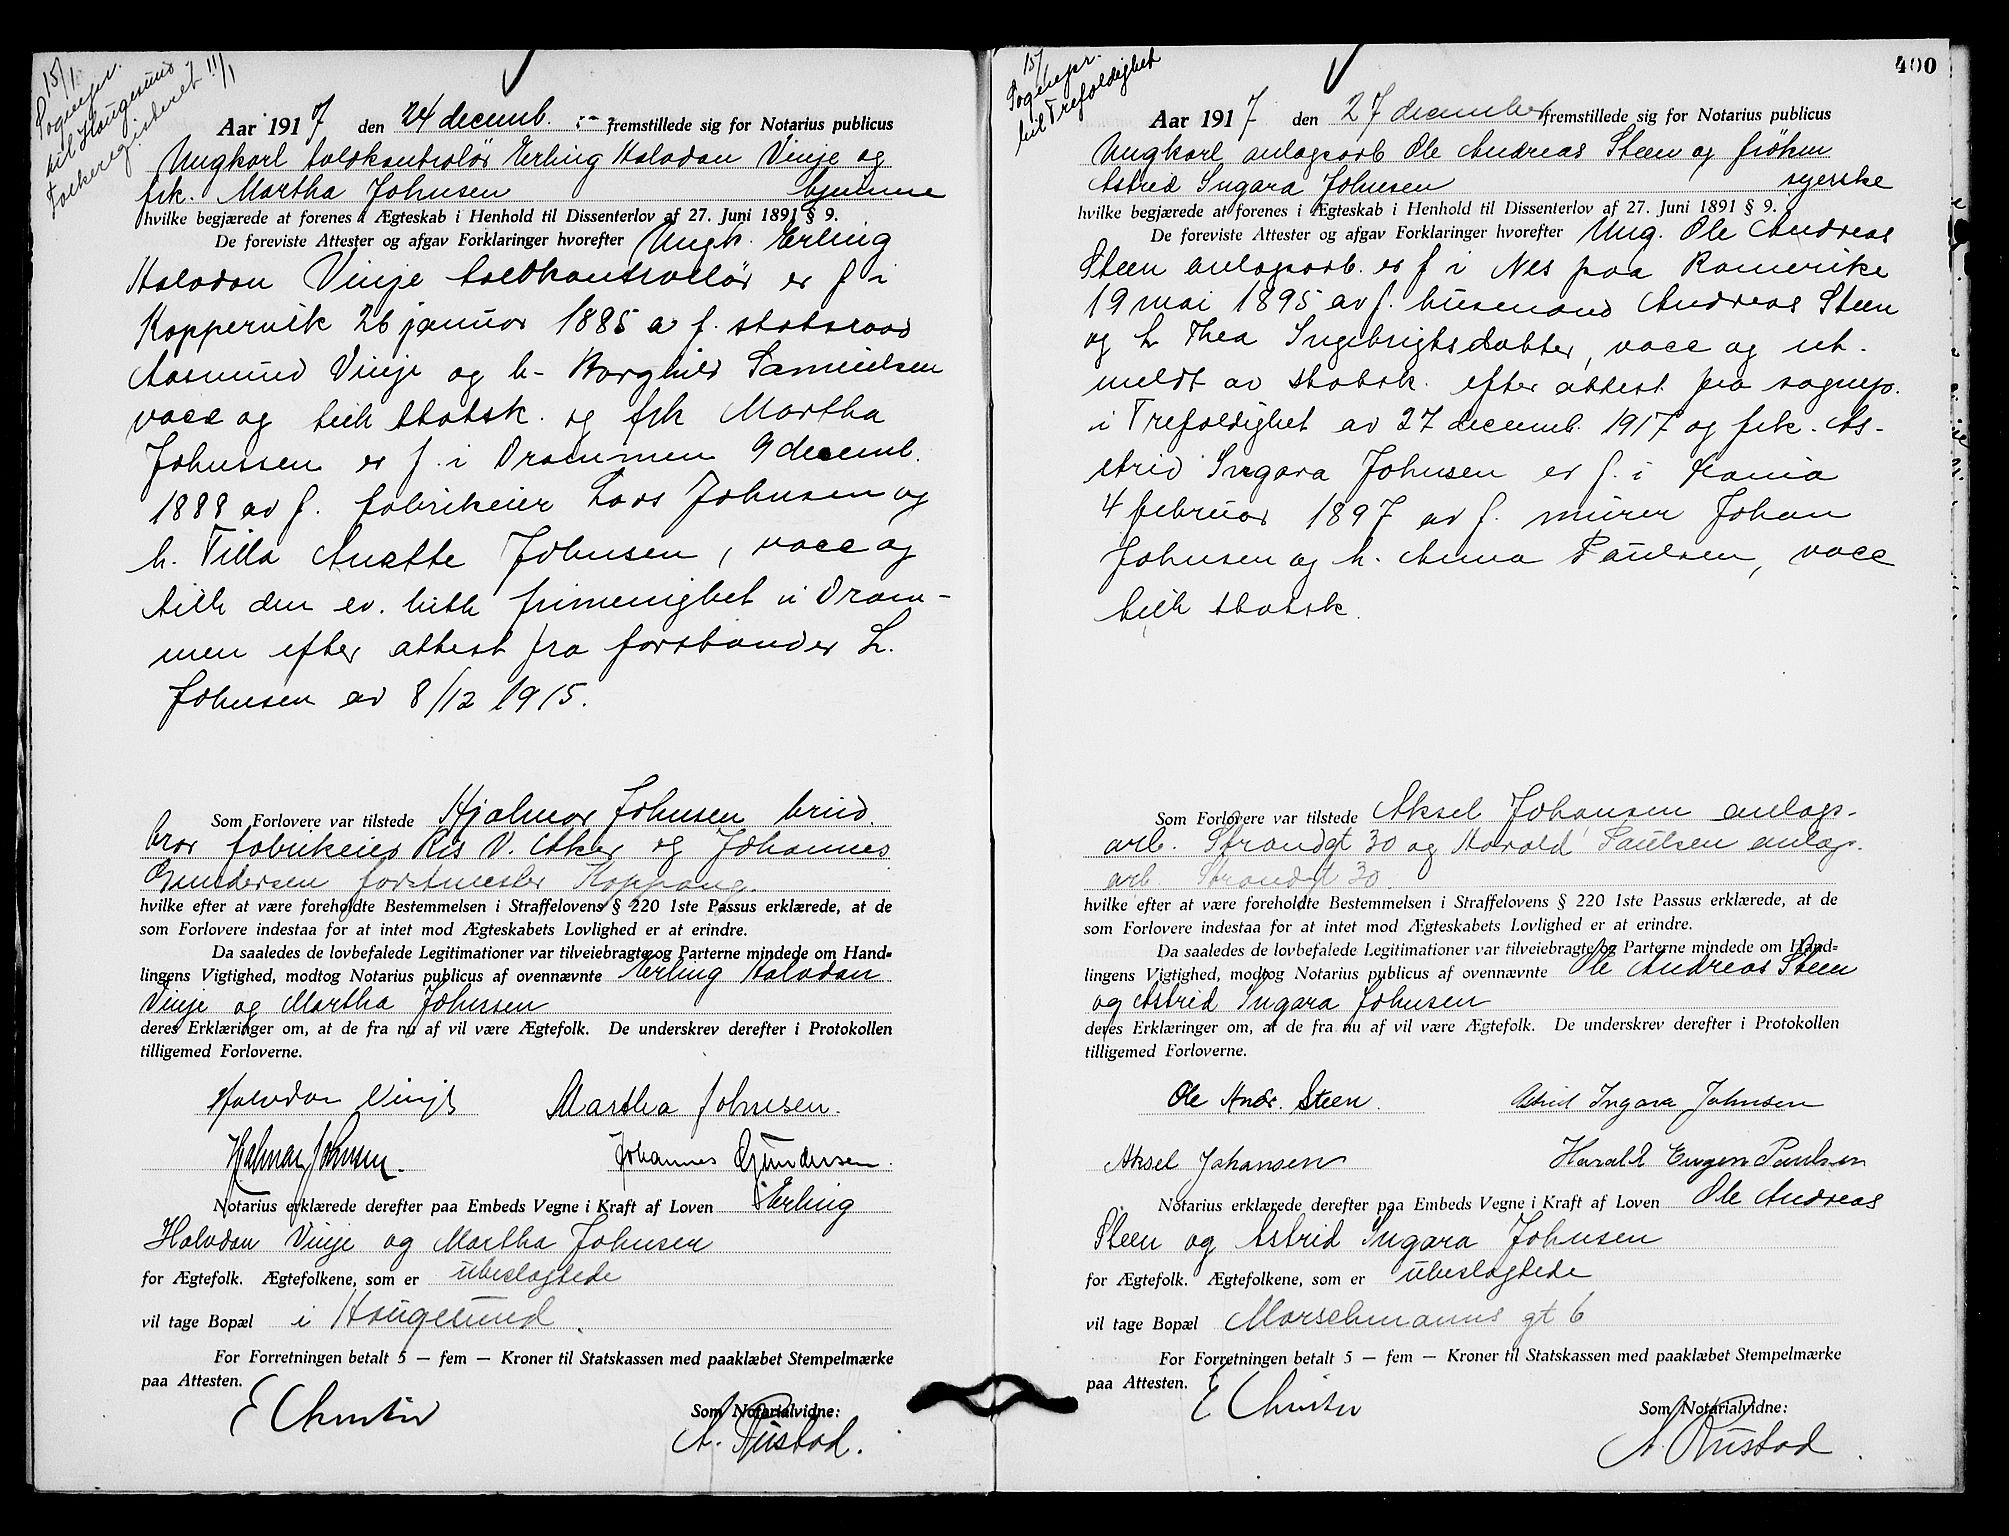 15/1
Sognepr.
til Haugesund
Folkeregisteret 11/1
Aar 1917 den 24 decemb. fremstillede sig for Notarius publicus
Ungkarl toldkontrolør Erling Halvdan Vinje og
frk. Martha Johnsen hjemme
hvilke begjærede at forenes i Ægteskab i Henhold til Dissenterlov af 27. Juni 1891 § 9.
De foreviste Attester og afgav Forklaringer hvorefter Ungk. Erling
Halvdan Vinje toldkontrollør er f i
Koppervik 26 januar 1885 av f. statsraad
Aasmund Vinje og h- Borghild Samuelsen
vacc og tilh statsk. og frk Martha
Johnssen er f. i Drammen 9 decemb.
1888 av f. fabrikeier Lars Johnsen og
h. Tilla Anette Johnsen, vacc og
tilh den ev. luth frimenighet i Dram-
men efter attest fra forstander L.
Johnsen av 8/12 1915.
Som Forlovere var tilstede Hjalmar Johnsen brud.
bror fabrikeier Ris V. Aker og Johannes
Gundersen forstmester Koppang.
hvilke efter at være foreholdte Bestemmelsen i Straffelovens § 220 1ste Passus erklærede, at de
som Forlovere indestaa for at intet mod Ægteskabets Lovlighed er at erindre.
Da saaledes de lovbefalede Legitimationer var tilveiebragte og Parterne mindede om Hand-
lingens Vigtighed, modtog Notarius publicus af ovennævnte Erling Halvdan
Vinje og Martha Johnsen
deres Erklæringer om, at de fra nu af vil være Ægtefolk. De underskrev derefter i Protokollen
tilligemed Forloverne.
Halvdan Vinje Martha Johnsen.
Hjalmar Johnsen. Johannes Gundersen.
Notarius erklærede derefter paa Embeds Vegne i Kraft af Loven Erling
Halvdan Vinje og Martha Johnsen
for Ægtefolk. Ægtefolkene, som er ubeslægtede
vil tage Bopæl i Haugesund.
For Forretningen betalt 5 — fem — Kroner til Statskassen med paaklæbet Stempelmærke
paa Attesten.
E Christie
Som Notarialvidne:
A. Rustad.
400
15/1
Sognepr.
til Trefoldighet
Aar 1917 den 27 december fremstillede sig for Notarius publicus
Ungkarl anlægsarb Ole Andreas Steen og frøken
Astrid Ingara Johnsen syerske
hvilke begjærede at forenes i Ægteskab i Henhold til Dissenterlov af 27. Juni 1891 § 9.
De foreviste Attester og afgav Forklaringer hvorefter Ung. Ole Andreas
Steen anlægsarb. er f i Nes paa Romerike
19 mai 1895 av f. husmand Andreas Steen
og h Thea Ingebrigtsdatter, vacc og ut-
meldt av statsk. efter attest fra sognep.
i Trefoldighet av 27 decemb. 1917 og frk. As-
trid Ingara Johnsen er f. i Krania
4 februar 1897 av f. murer Johan
Johnsen og h. Anna Paulsen, vacc
tilh statsk.
Som Forlovere var tilstede Aksel Johansen anlægs-
arb. Strandgt 30 og Harald Paulsen anlægs-
arb. Strandgt 30.
hvilke efter at være foreholdte Bestemmelsen i Straffelovens § 220 1ste Passus erklærede, at de
som Forlovere indestaa for at intet mod Ægteskabets Lovlighed er at erindre.
Da saaledes de lovbefalede Legitimationer var tilveiebragte og Parterne mindede om Hand-
lingens Vigtighed, modtog Notarius publicus af ovennævnte Ole Andreas Steen
og Astrid Ingara Johnsen
deres Erklæringer om, at de fra nu af vil være Ægtefolk. De underskrev derefter i Protokollen
tilligemed Forloverne.
Ole Andr. Steen. Astrid Ingara Johnsen
Aksel Johansen Harald Eugen Paulsen
Notarius erklærede derefter paa Embeds Vegne i Kraft af Loven Ole Andreas
Steen og Astrid Ingara Johnsen
for Ægtefolk. Ægtefolkene, som er ubeslægtede
vil tage Bopæl Marschmanns gt 6
For Forretningen betalt 5 — fem — Kroner til Statskassen med paaklæbet Stempelmærke
paa Attesten.
E Christie
Som Notarialvidne:
A. Rustad